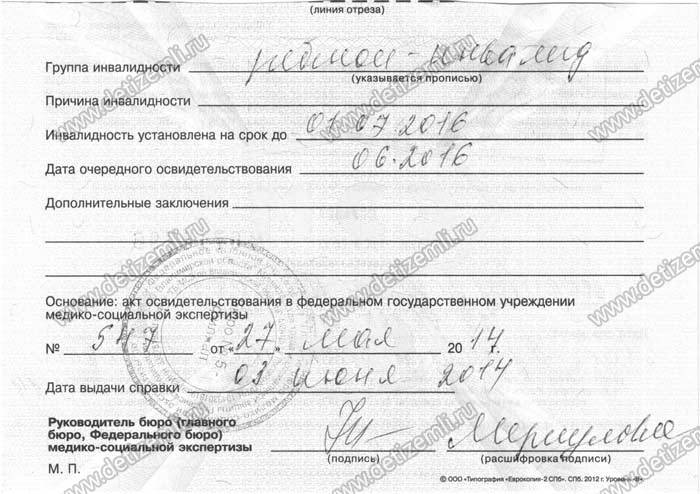 (линия отреза)
Группа инвалидности ребенок-инвалид
(указывается прописью)
Причина инвалидности
Инвалидность установлена на срок до 01.07.2016
Дата очередного освидетельствования 06.2016
Дополнительные заключения
Основание: акт освидетельствования в федеральном государственном учреждении
медико-социальной экспертизы
№ 547 от «27» мая 2014 г.
Дата выдачи справки 03 июня 2014
Руководитель бюро (главного
бюро, Федерального бюро)
медико-социальной экспертизы Меркулова
(подпись) (расшифровка подписи)
М. П.
© ООО «Типография «Еврокопия-2 СПб». СПб. 2012 г. Уровень «В»
www.detizemli.ru